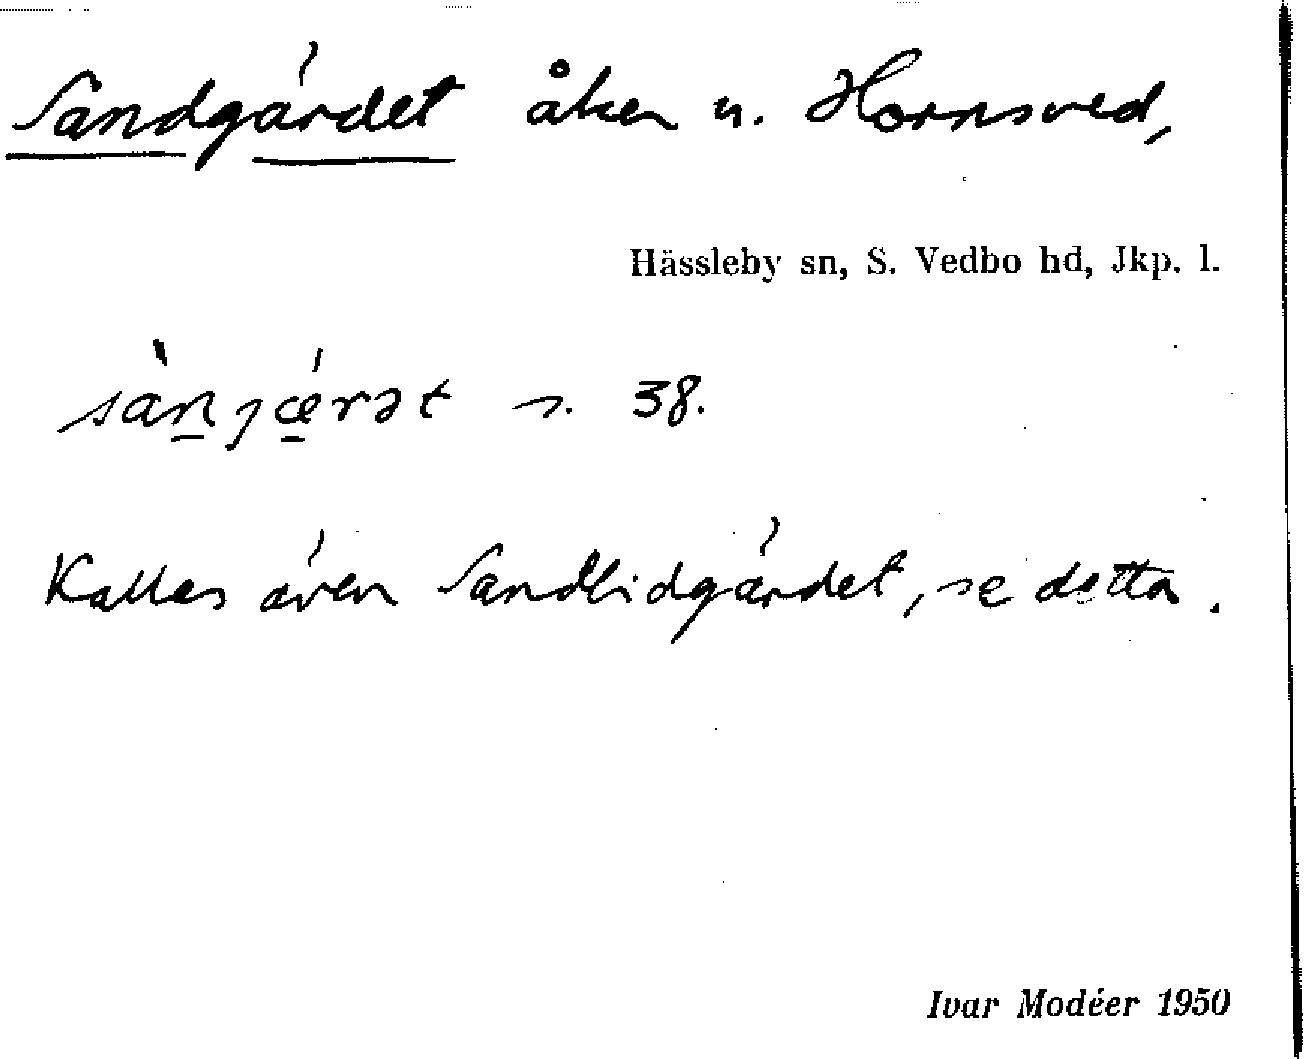 Sandgärdet åker u. Hornsved,
Hässleby sn, S. Vedbo hd, Jkp. l.
sàn̠jǽ̠rət s. 38.
Kallas även Sandlidgärdet, se detta.
Ivar Modéer 1950